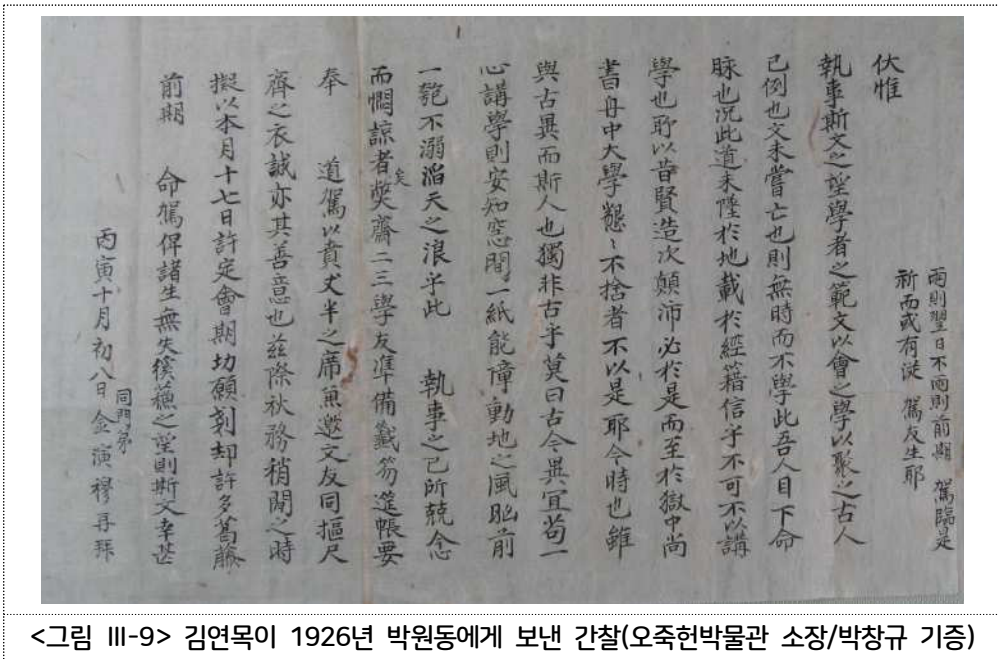 伏惟
執事斯文之望學者之範文以會之學以聚之古人
已例也文未嘗亡也則無時而不學此吾人目下命
脉也況此道未墜於地載於經籍信乎不可不以講
學也耶以昔賢造次顛沛必於是而至於獄中尚
書舟中大學懇〻不捨者不以是耶今時也雖
與古異而斯人也獨非古乎莫曰古今異宜苟一
心講學則安知窓間一紙能障動地之風眇前
一匏不溺滔天之浪乎此 執事之已所兢念
而憫諒者矣弊齋二三學友準備籤笏造帳要
奉 道駕以賁丈半之席兼邀文友同摳尺
齊之衣誠亦其善意也玆際秋務稍閒之時
擬以本月十七日許定會期切願刻却許多葛藤
前期 命駕俾諸生無失徯蘓之望則斯文幸甚
丙寅十月初八日 同門弟 金演穆再拜
雨則翌日不雨則前期 駕臨是
祈而或有淡 駕友生耶
<그림 Ⅲ-9> 김연목이 1926년 박원동에게 보낸 간찰(오죽헌박물관 소장/박창규 기증)